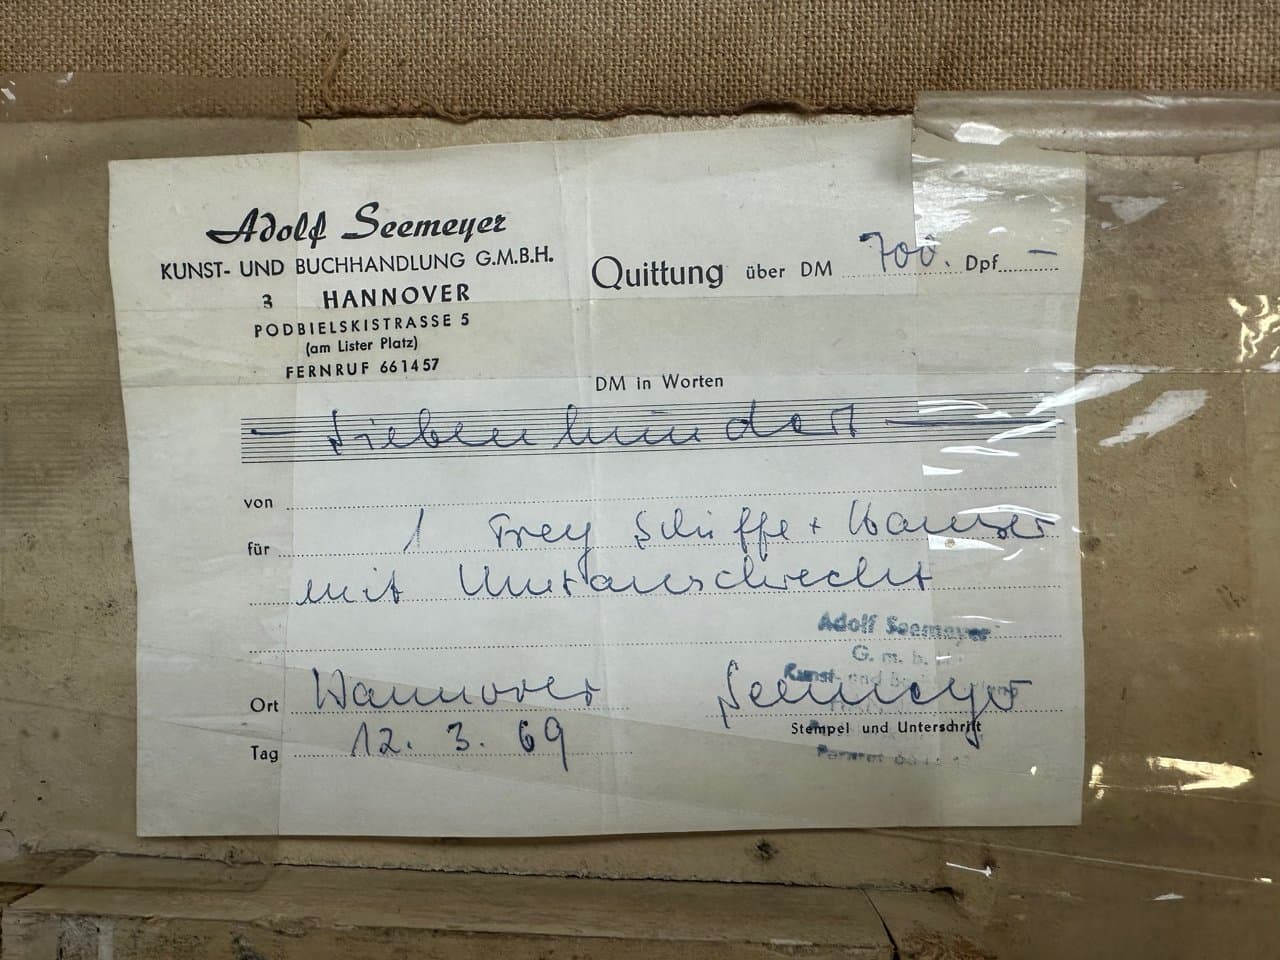 Adolf Seemeyer
KUNST- UND BUCHHANDLUNG G.M.B.H.
3 HANNOVER
PODBIELSKISTRASSE 5
(am Lister Platz)
FERNRUF 661457
Quittung über DM 700. Dpf. —
DM in Worten
— Siebenhundert —
von
für 1 Frey Schiffe +
mit Umtauschrecht
Adolf Seemeyer
G. m. b. H.
Kunst- und
Ort Hannover
Seemeyer
Stempel und Unterschrift
Tag 12. 3. 69